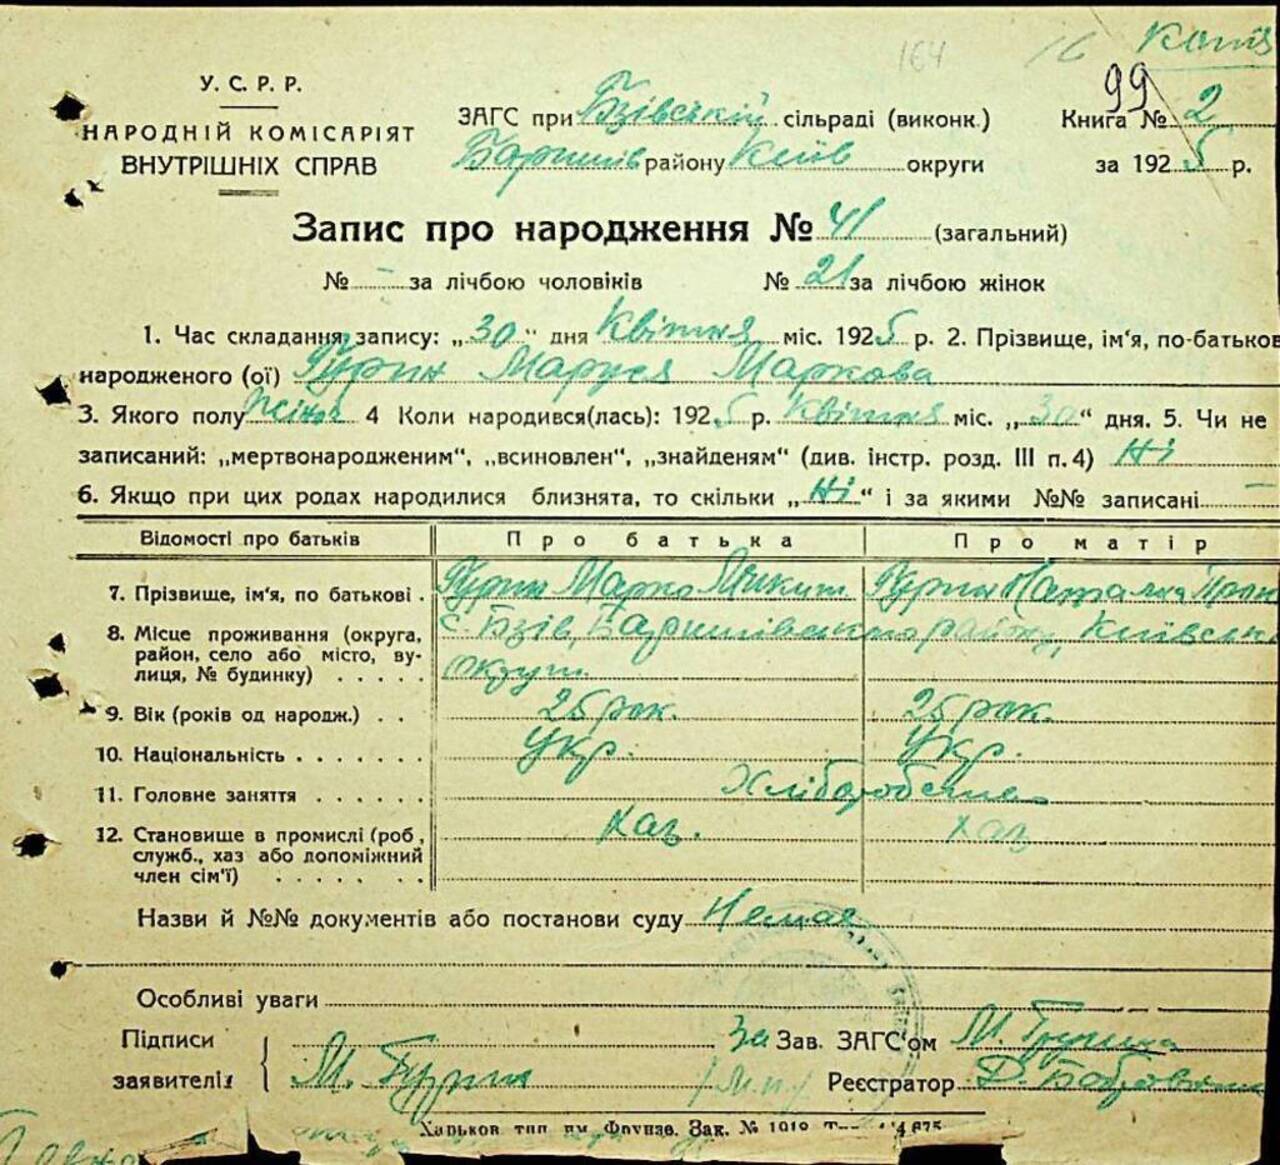 164 16 Копія
У. С. Р. Р.
99
НАРОДНІЙ КОМІСАРІЯТ
ВНУТРІШНІХ СПРАВ
ЗАГС при Бзівській сільраді (виконк.) Книга № 2
Баришів району Київ округи за 1925 р.
Запис про народження № 41 (загальний)
№ - за лічбою чоловіків № 21 за лічбою жінок
1. Час складання запису: „30“ дня Квітня міс. 1925 р. 2. Прізвище, ім‘я, по-батьков
народженого (ої) Гурин Маруся Маркова
3. Якого полу жіноч 4 Коли народився(лась): 1925 р. Квітня міс. „30“ дня. 5. Чи не
записаний: „мертвонародженим“, „всиновлен“, „знайденям“ (див. інстр. розд. III п. 4) Ні
6. Якщо при цих родах народилися близнята, то скільки „Ні“ і за якими №№ записані -
Відомості про батьків Про батька Про матір
7. Прізвище, ім‘я, по батькові . Гурин Марко Микит Гурин Наталка
8. Місце проживання (округа, с. Бзів, Баришівського району, Київськ
район, село або місто, ву-
лиця, № будинку) . . . . . округи
9. Вік (років од народж.) . . 25 рок. 25 рок.
10. Національність . . . . . . . Укр. Укр.
11. Головне заняття . . . . . . Хліборобство
12. Становище в промислі (роб., Хаз. хаз
служб., хаз або допоміжний
член сім‘ї) . . . . . . .
Назви й №№ документів або постанови суду Немає
Особливі уваги
Підписи За Зав. ЗАГС‘ом М.
заявителів М. Гурин /М.п./ Реєстратор Д.
Харьков тип им Фрунзе. Зак. №